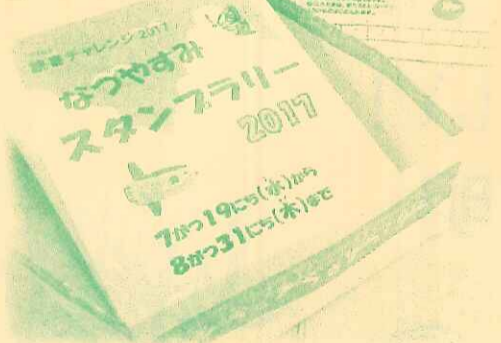 読書チャレンジ 2017
なつやすみ
スタンプラリー
2017
7がつ19にち(水)から
8がつ31にち(木)まで